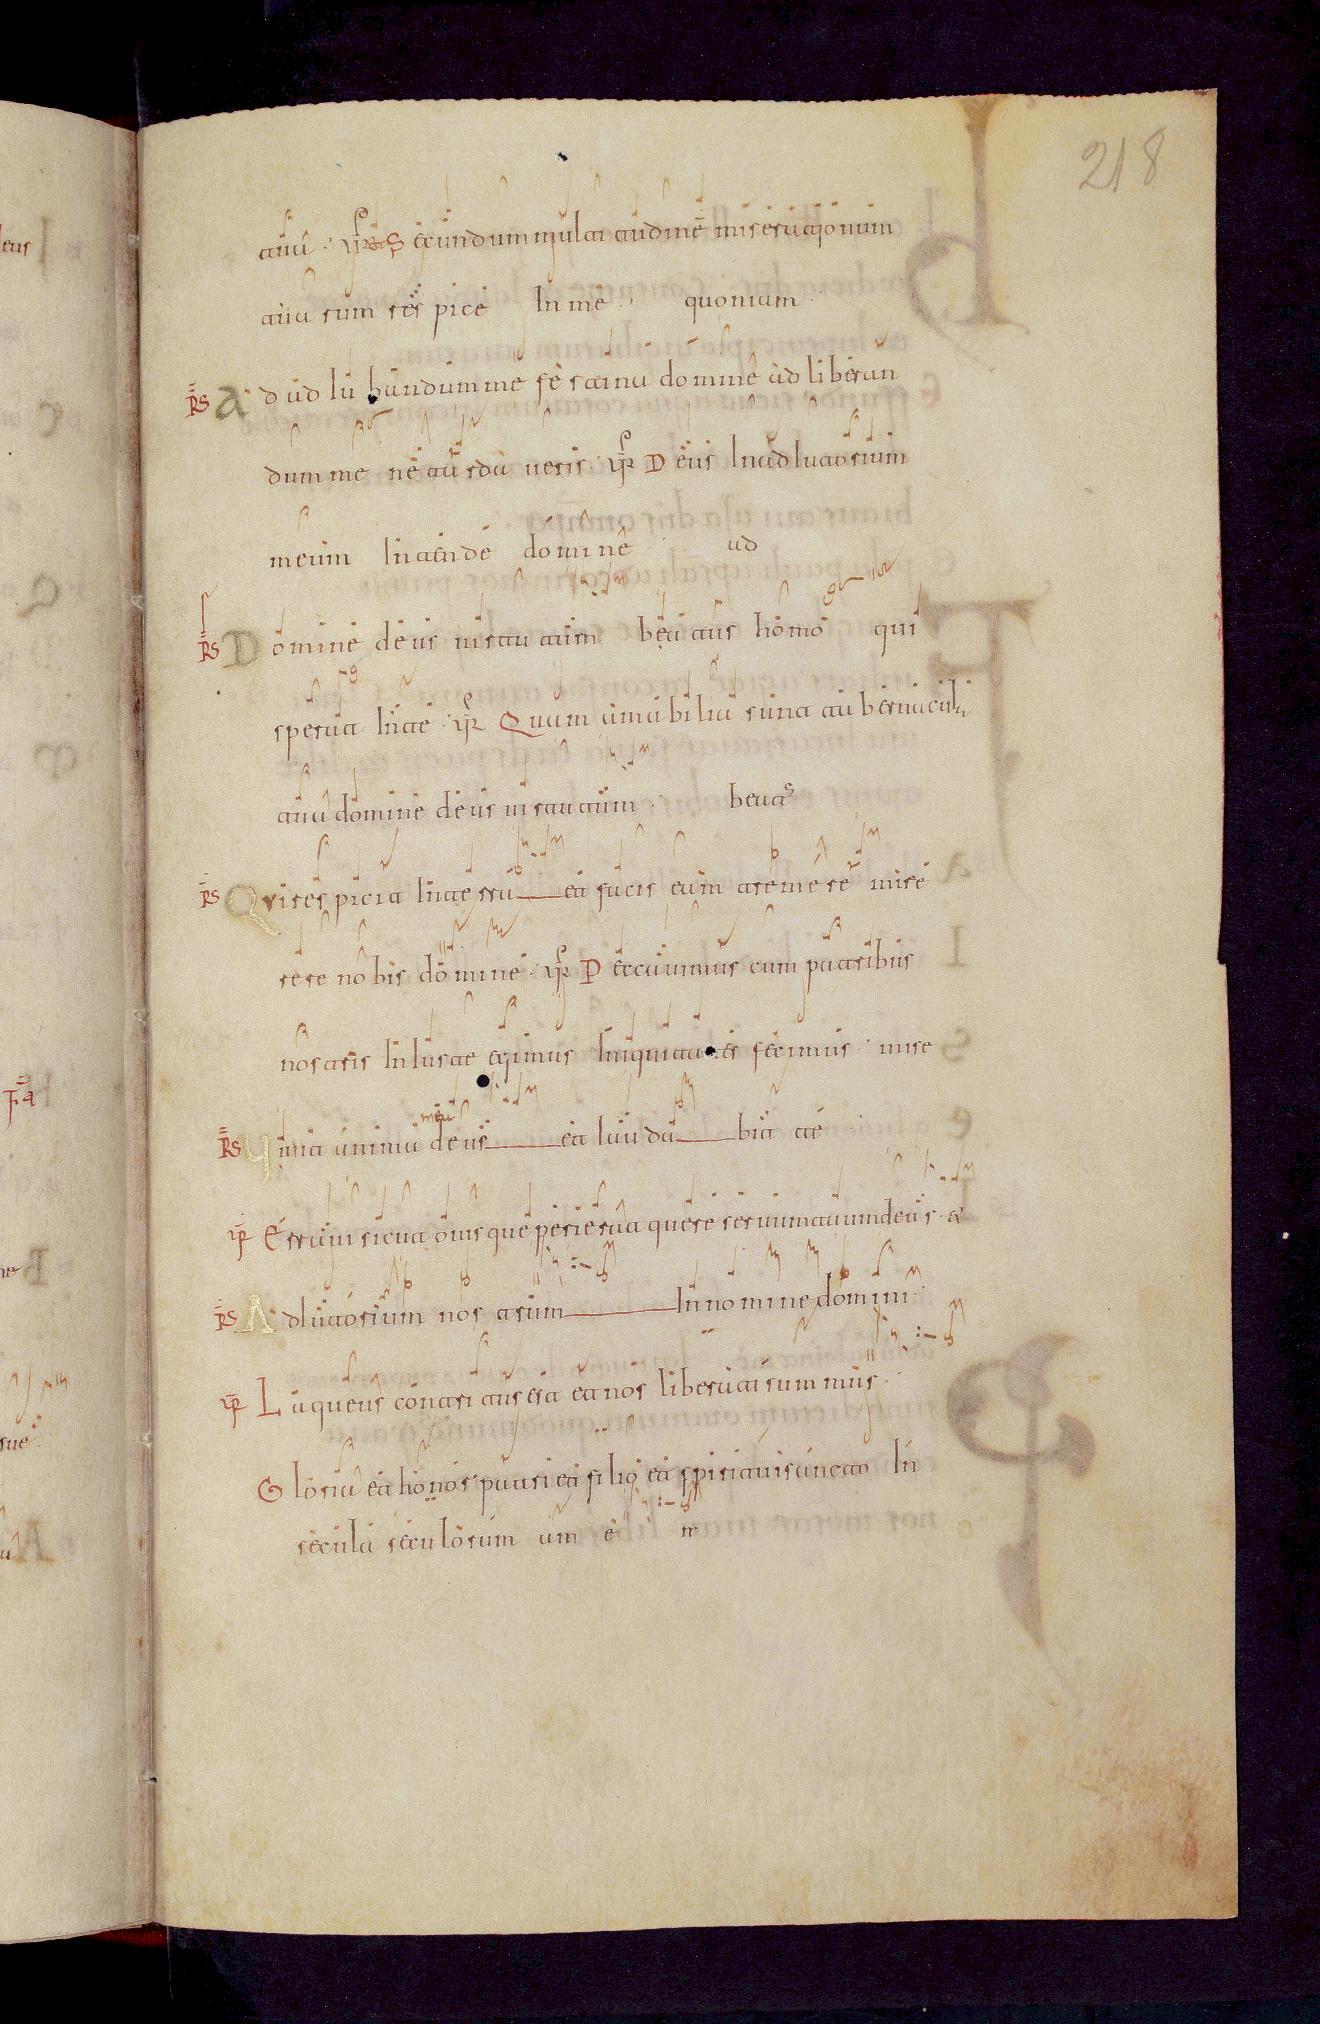 218
tua · VR Secundum multitudinem miserationum
tuarum respice In me · quoniam
RS Ad adiubandum me festina domine ad liberan
dum me ne tardaveris · VR Deus In adIutorium
meum Intende domine · ad
RS Domine deus virtutum beatus homo qui
sperat In te · VR Quam amabilia sunt tabernacula
tua domine deus virtutum · beatus
RS Qui respicit In terra et facis eam tremere mise
rere nobis domine · VR Peccavimus cum patribus
nostris InIuste egimus Iniquitates fecimus · mise
mea
RS Vivit anima deus et laudabit te
VR Erravi sicut ovis que perierat quere servum tuum deus · et
RS AdIutorium nostrum In nomine domini ·
VR Laqueus contritus est et nos liberati sumus ·
Gloria et honor patri et filio et spiritui sancto In
secula seculorum amen